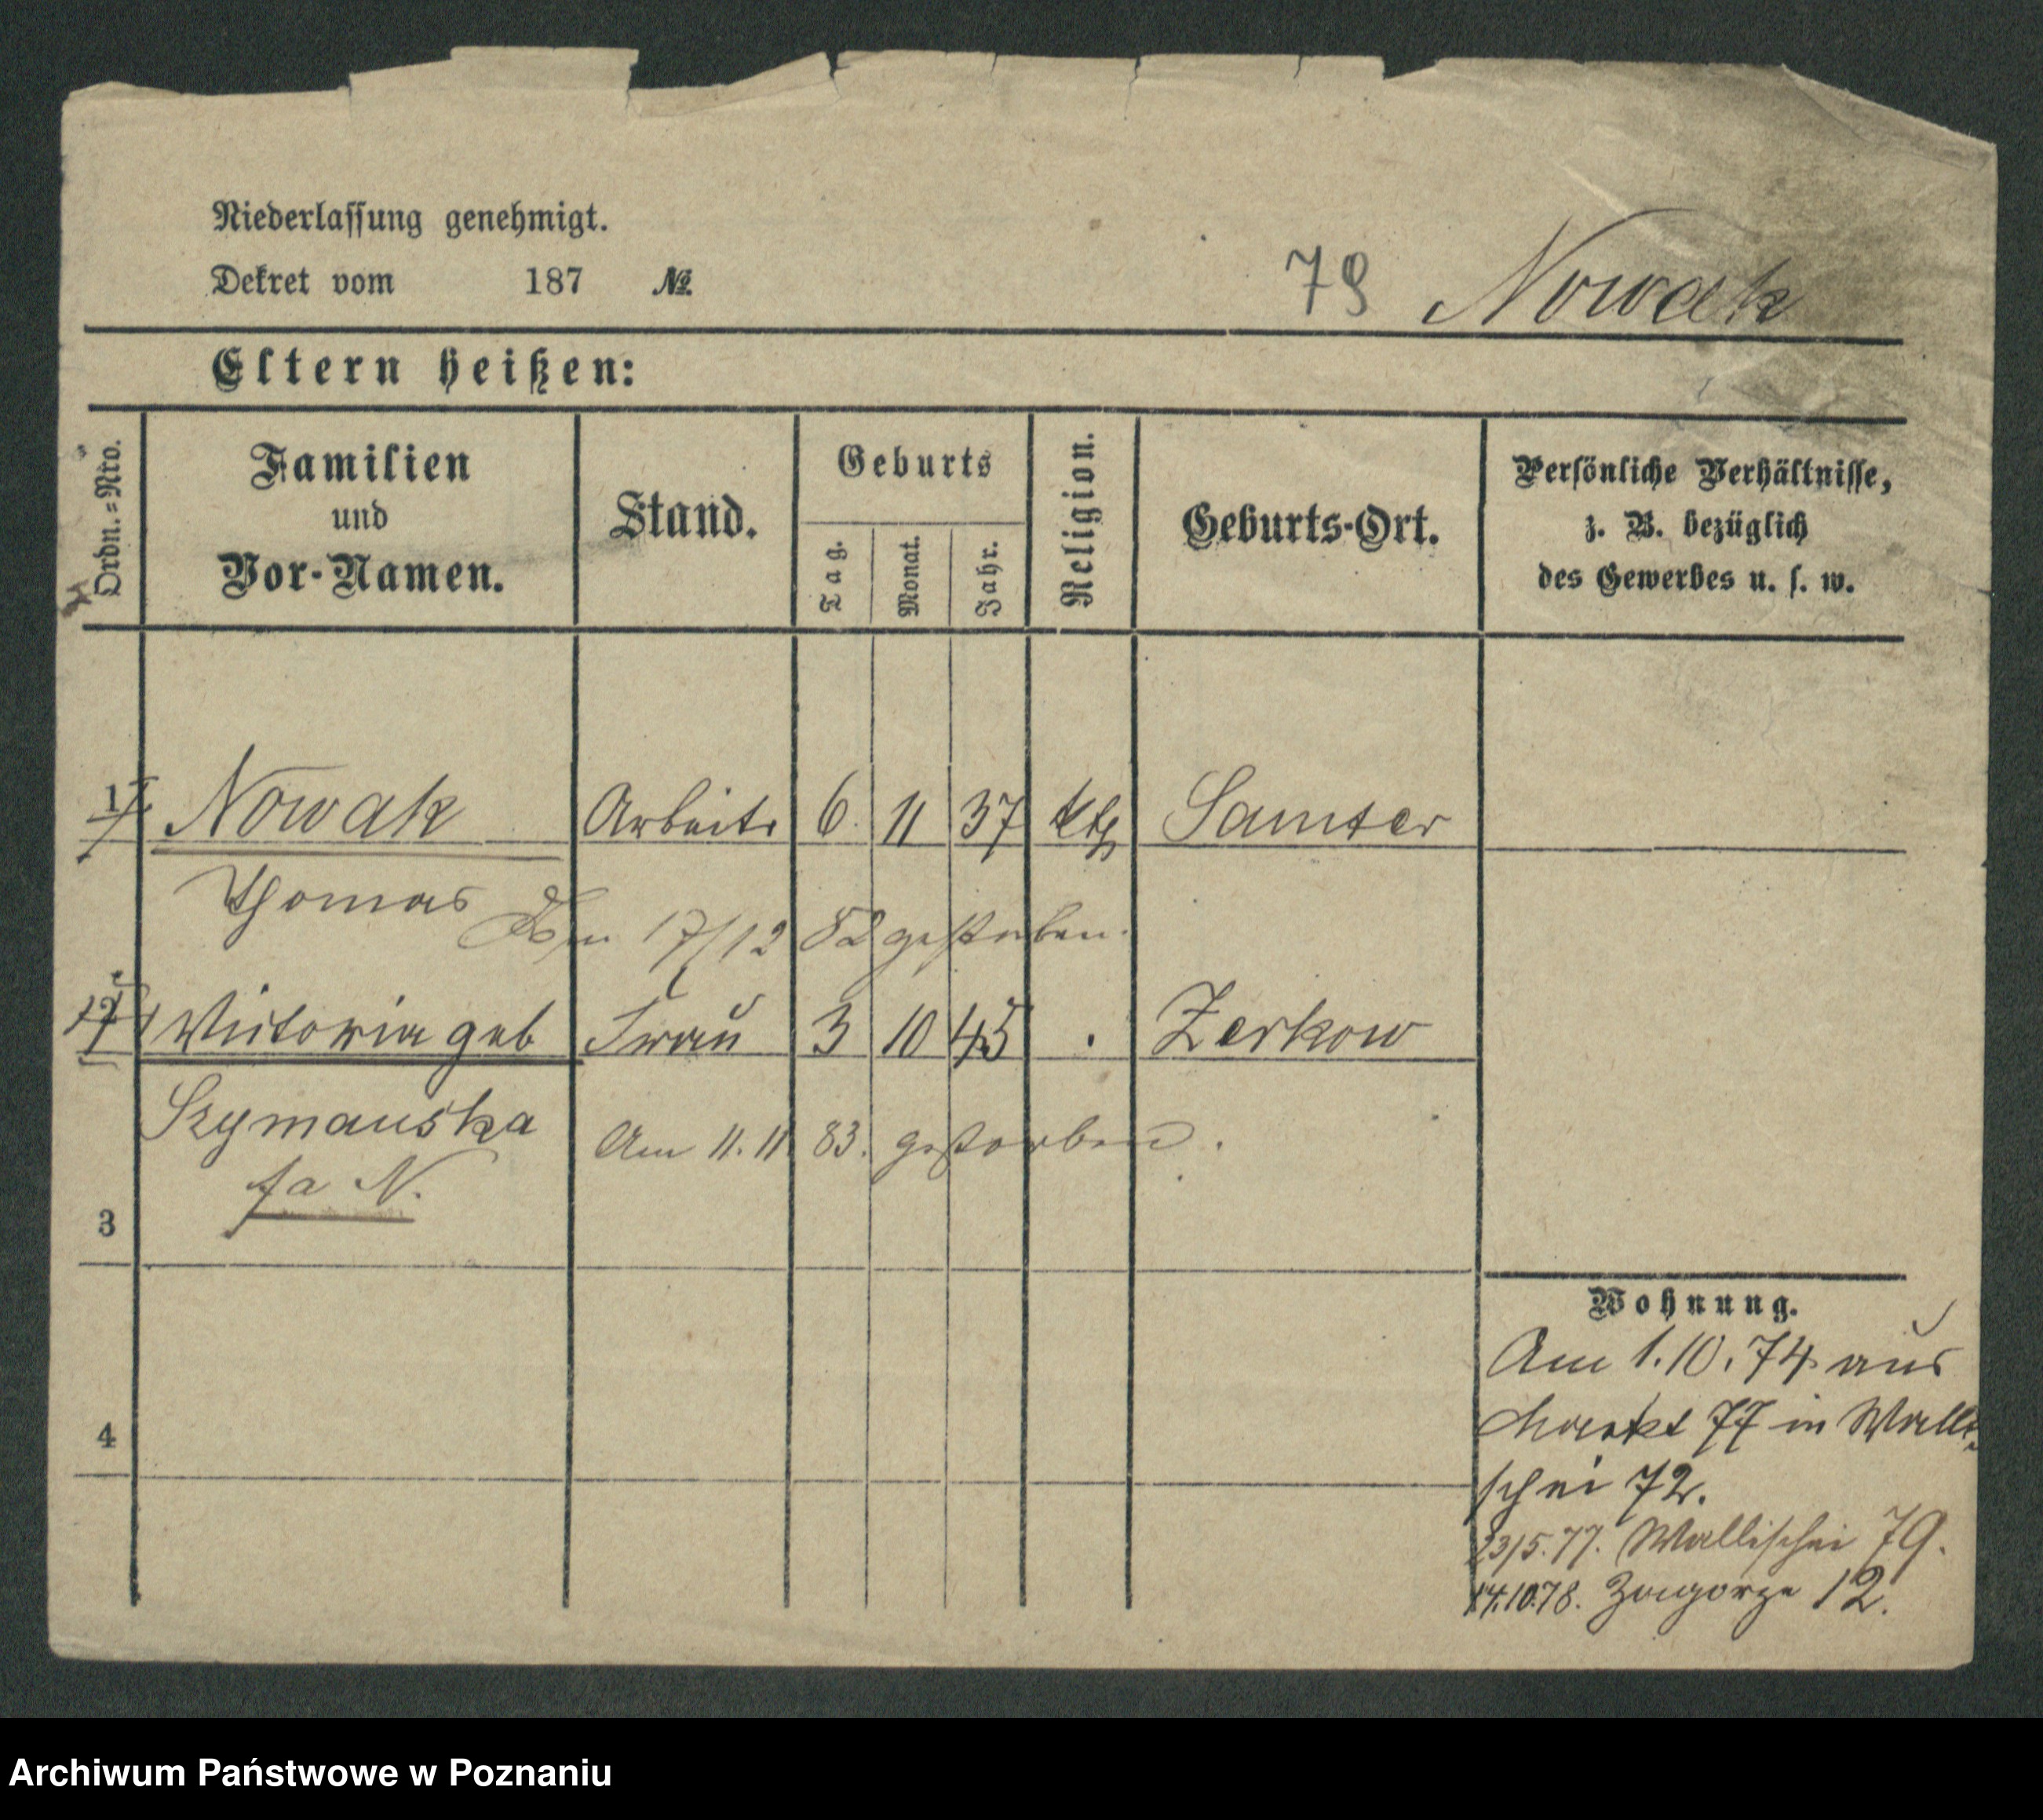 Niederlassung genehmigt.
Dekret vom 187 №
79 Nowak
Eltern heißen:
Ordn.=Nro.
Familien
und
Vor-Namen.
Stand.
Geburts
Tag.
Monat.
Jahr.
Religion.
Geburts-Ort.
Persönliche Verhältnisse,
z. B. bezüglich
des Gewerbes u. s. w.
1 Nowak Arbeitr 6. 11 37 kth Samter
Thomas
17/12 82 gestorben.
2 Victoria geb Frau 3 10 45 . Zerkow
Szymanska
Am 11. 11. 83. gestorben.
fa N.
3
4
Wohnung.
Am 1.10.74 aus
Markt 77 in Walli-
schei 72.
23/5.77. Wallischei 79.
14.10.78. Zagorze 12.
Archiwum Państwowe w Poznaniu